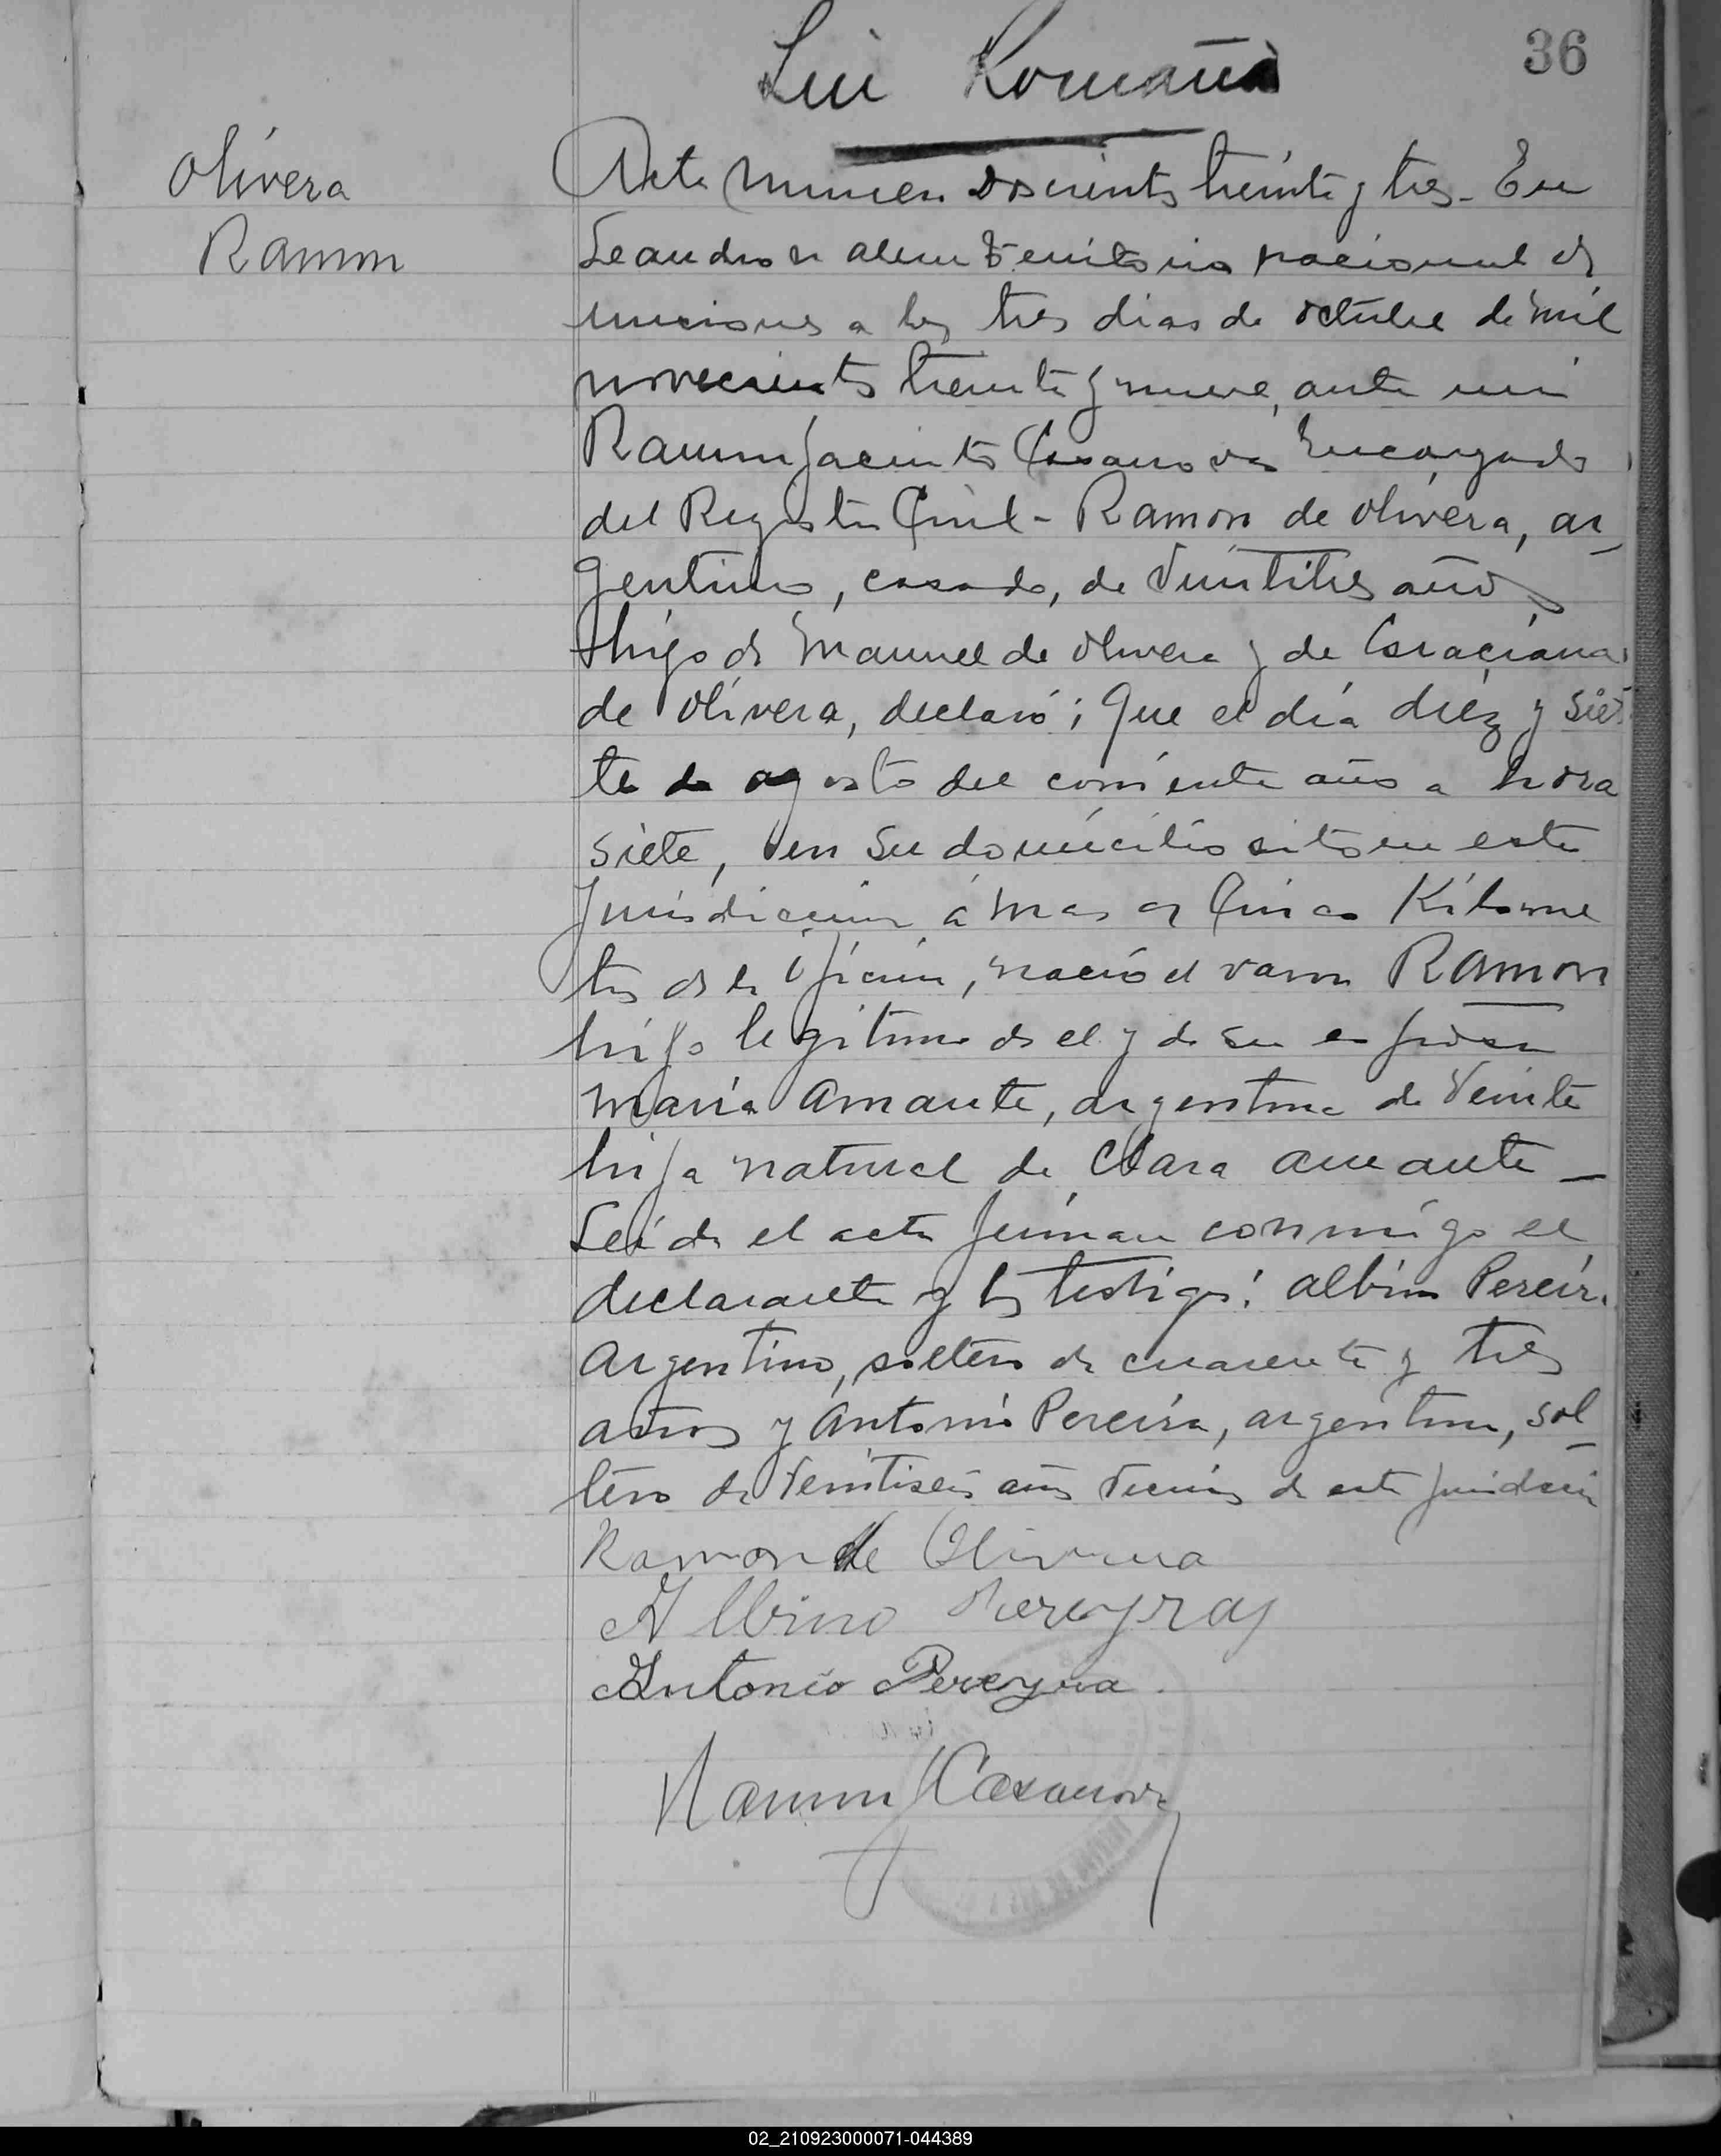 36
Luis Romañu
Olivera
Ramon
Acta numero doscientos treinta y tres - En
Leandro n alem territorio nacional de
misiones a los tres dias de octubre de mil
novecientos treinta y nueve, ante mi
Ramon Jacinto Casanova Encargado
del Registro Civil - Ramon de Olivera, ar
gentino, casado, de veintitres años
hijo de Manuel de Olivera y de Graciana
de Olivera, declaró; Que el día diéz y siet
te de agosto del corriente año a hora
siete, en su domicilio sito en esta
Jurisdiccion á mas de Cinco Kilome
tros de la oficina, nació el varon Ramon
hijo legitimo de el y de su esposa
maria Amante, argentina de veinte
hija natural de Clara amante -
Leida el acta firman conmigo el
declarante y los testigos: albino Pereira
Argentino, soltero de cuarenta y tres
años y Antonio Pereira, argentino, sol
tero de veintiseis años vecinos de esta jurisdiccion
Ramon de Olivera
Albino Pereyra
Antonio Pereyra
Ramon J Casanova
02_210923000071-044389